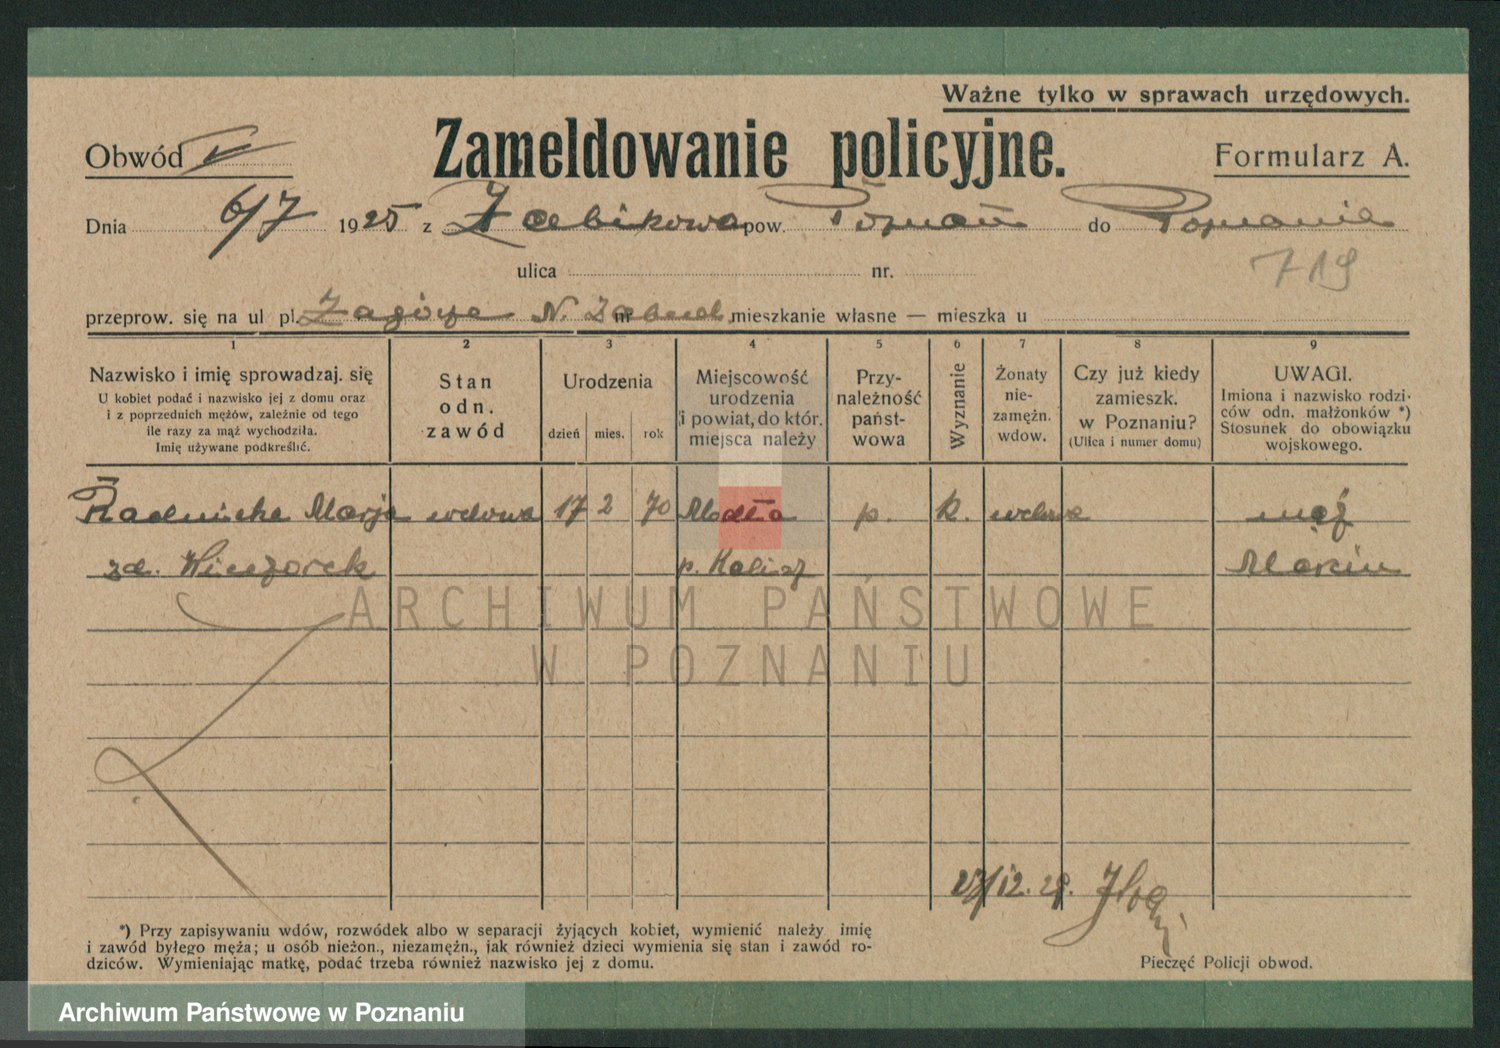 Ważne tylko w sprawach urzędowych.
Obwód V
Zameldowanie policyjne.
Formularz A.
Dnia 6/7 1925 z Żabikowa pow. Poznań do Poznania
ulica nr.
719
przeprow. się na ul pl. Zagórze N. nr mieszkanie własne — mieszka u
1 2 3 4 5 6 7 8 9
Nazwisko i imię sprowadzaj. się
U kobiet podać i nazwisko jej z domu oraz
i z poprzednich mężów, zależnie od tego
ile razy za mąż wychodziła.
Imię używane podkreślić.
Stan
odn.
zawód
Urodzenia
dzień mies. rok
Miejscowość
urodzenia
i powiat, do któr.
miejsca należy
Przy-
należność
państ-
wowa
Wyznanie
Żonaty
nie-
zamężn.
wdow.
Czy już kiedy
zamieszk.
w Poznaniu?
(Ulica i numer domu)
UWAGI.
Imiona i nazwisko rodzi-
ców odn. małżonków *)
Stosunek do obowiązku
wojskowego.
Marja wdowa 17 2 70 Modła p. k. wdowa mąż
zd. Wieczorek p. Kalisz Marcin
ARCHIWUM PAŃSTWOWE
W POZNANIU
27/12.28.
*) Przy zapisywaniu wdów, rozwódek albo w separacji żyjących kobiet, wymienić należy imię
i zawód byłego męża; u osób nieżon., niezamężn., jak również dzieci wymienia się stan i zawód ro-
dziców. Wymieniając matkę, podać trzeba również nazwisko jej z domu.
Pieczęć Policji obwod.
Archiwum Państwowe w Poznaniu